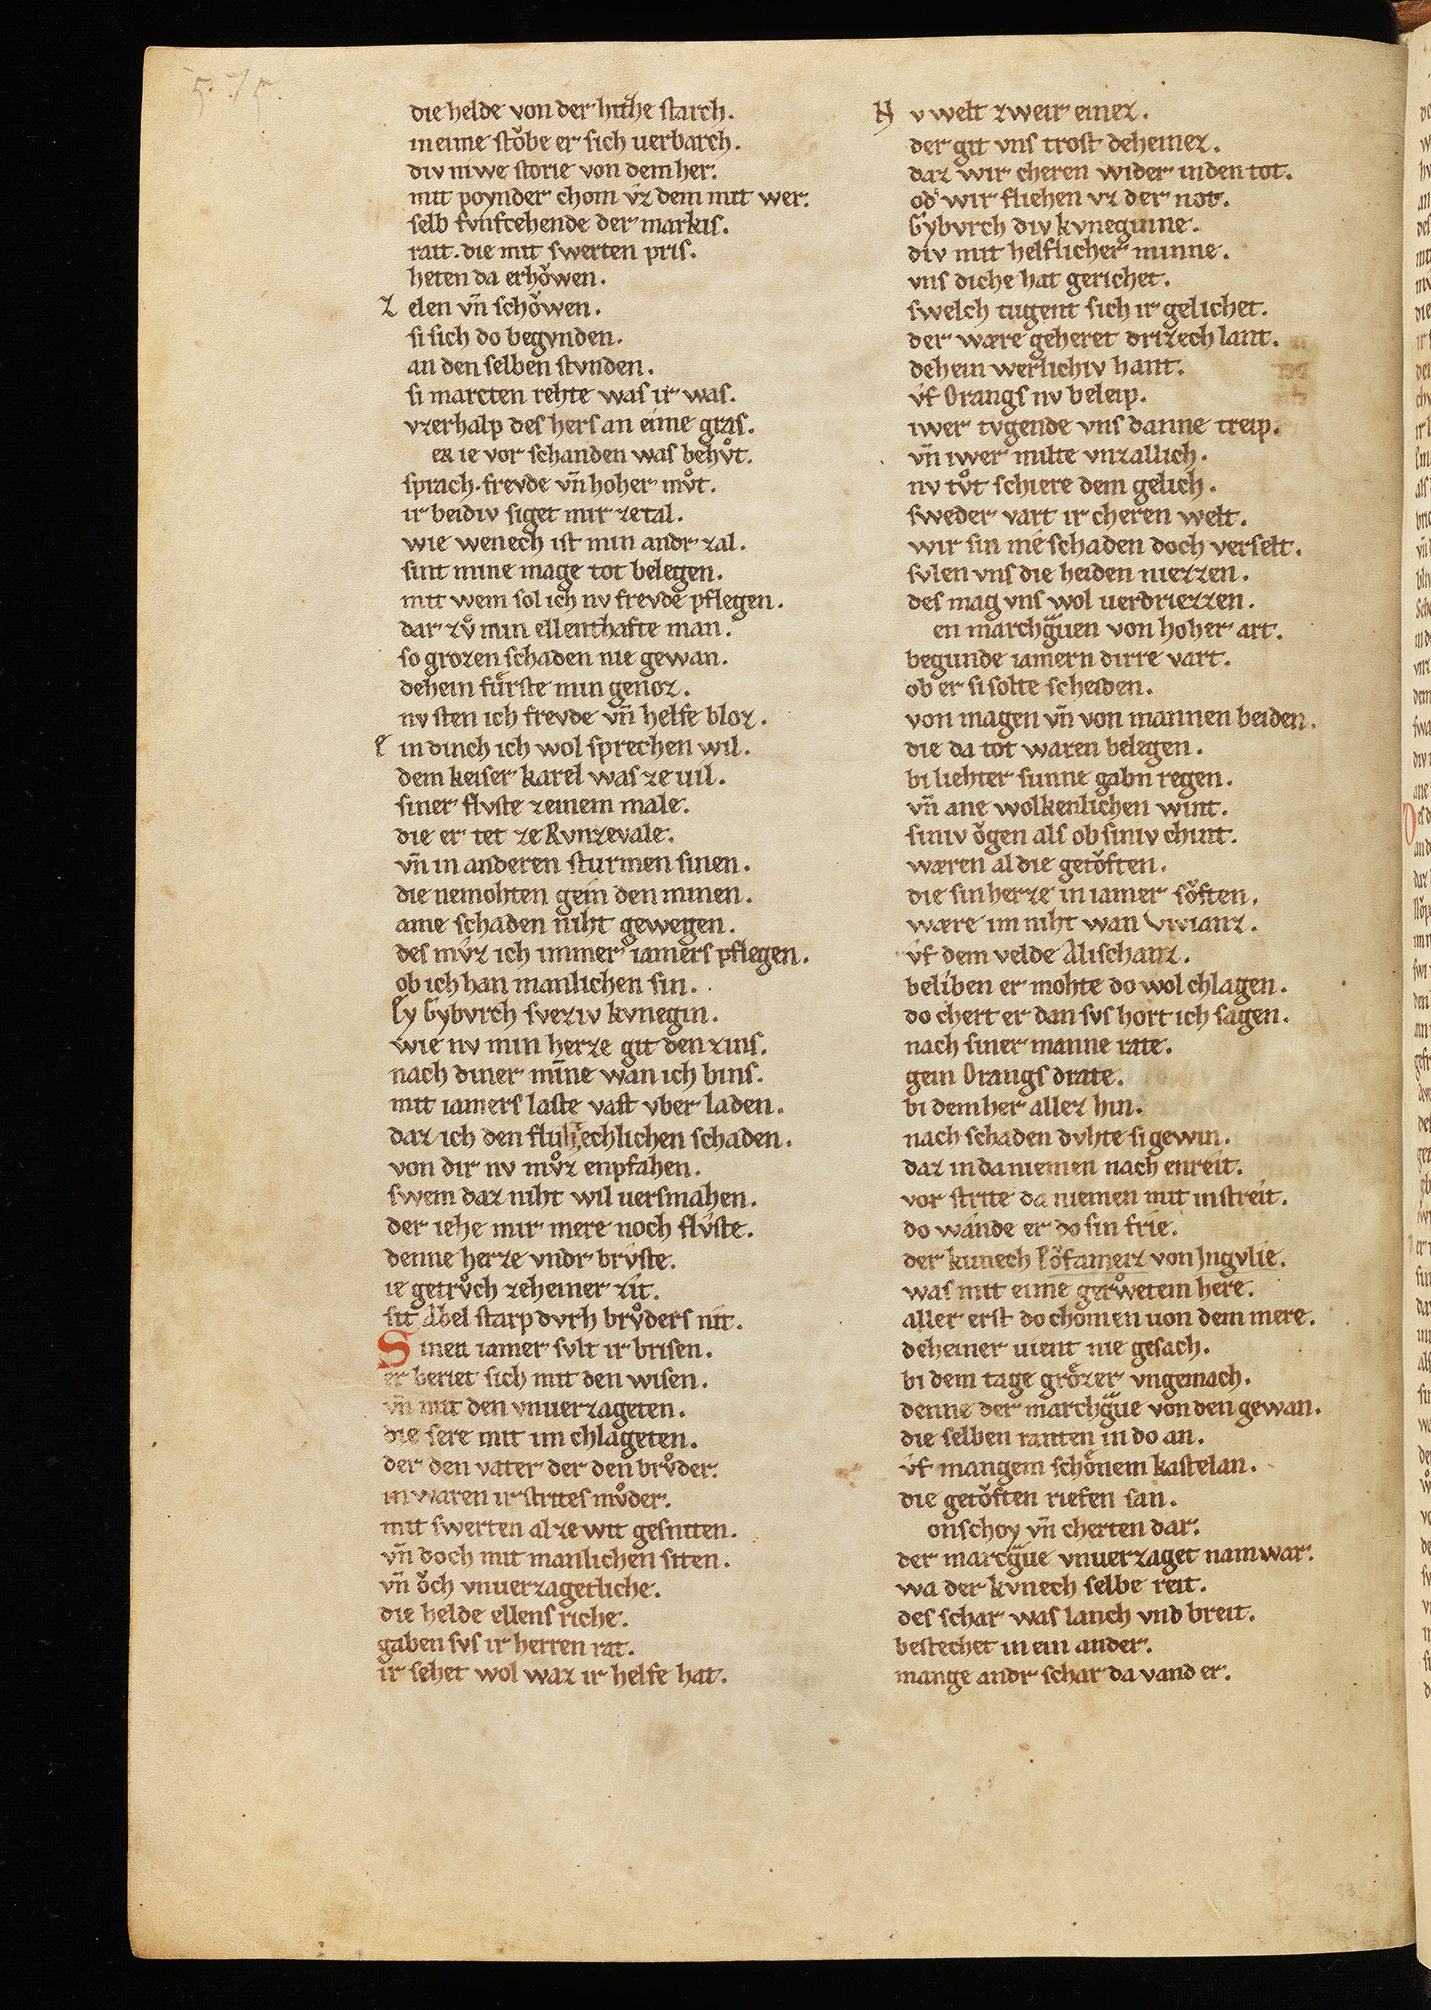 575.
die helde von der hithe starch.
in eine stoͮbe er sich uerbarch.
div niwe storie von dem her.
mit poynder chom vz dem mit wer.
selb fvnfcehende der markis.
rait. die mit swerten pris.
heten da erhoͮwen.
Z elen vn̄ schoͮwen.
si sich do begvnden.
an den selben stvnden.
si marcten rehte was ir was.
vzerhalp des hers an eime gras.
er ie vor schanden was behvͦt.
sprach. frevde vn̄ hoher mvͦt.
ir beidiv siget mir zetal.
wie wenech ist min andr zal.
sint mine mage tot belegen.
mit wem sol ich nv frevde pflegen.
dar zvͦ min ellenthafte man.
so grozen schaden nie gewan.
dehein fuͤrste min genoz.
nv sten ich frevde vn̄ helfe bloz.
E in dinch ich wol sprechen wil.
dem keiser karel was ze uil.
siner flvste zeinem male.
die er tet ze Rvnzevale.
vn̄ in anderen sturmen sinen.
die nemohten gein den minen.
ame schaden niht gewegen.
des mvͦz ich immer iamers pflegen.
ob ich han manlichen sin.
Ey Gybvrch sveziv kvnegin.
wie nv min herze git den zins.
nach diner mīne wan ich bins.
mit iamers laste vast vber laden.
daz ich den fluhtechlichen schaden.
von dir nv mvͦz enpfahen.
swem daz niht wil uersmahen.
der iehe mir mere noch flvste.
denne herze vndr brvste.
ie getrvͦch zeheiner zit.
sit Abel starp dvrh brvͦders nit.
Sinen iamer svlt ir brisen.
er beriet sich mit den wisen.
vn̄ mit den vnuerzageten.
die sere mit im chlageten.
der den vater der den brvͦder.
in waren ir strites mvͦder.
mit swerten al ze wit gesniten.
vn̄ doch mit manlichen siten.
vn̄ oͮch vnuerzagetliche.
die helde ellens riche.
gaben svs ir herren rat.
ir sehet wol waz ir helfe hat.
N v welt zweir einez.
der git vns trost deheinez.
daz wir cheren wider in den tot.
od' wir fliehen vz der not.
Gybvrch div kvneginne.
div mit helflicher minne.
vns diche hat gerichet.
swelch tugent sich ir gelichet.
der wære geheret drizech lant.
dehein werlichiv hant.
vf Orangs nv beleip.
iwer tvgende vns danne treip.
vn̄ iwer milte vnzallich.
nv tvͦt schiere dem gelich.
sweder vart ir cheren welt.
wir sin mé schaden doch verselt.
svlen vns die heiden niezzen.
des mag vns wol uerdriezzen.
en marchgͣuen von hoher art.
begunde iamern dirre vart.
ob er si solte scheiden.
von magen vn̄ von mannen beiden.
die da tot waren belegen.
bi liehter sunne gabn regen.
vn̄ ane wolkenlichen wint.
siniv oͮgen als ob siniv chint.
wæren al die getoͮften.
die sin herze in iamer soͮften.
wære im niht wan Vivianz.
vf dem velde Alischanz.
beliben er mohte do wol chlagen.
do chert er dan svs hort ich sagen.
nach siner manne rate.
gein Orangs drate.
bi dem her allez hin.
nach schaden dvhte si gewin.
daz in da niemen nach enreit.
vor strite da niemen mit in streit.
do wande er do sin frie.
der kunech Poͮfameiz von Jngvlie.
was mit eime gerwetem here.
aller erst do chomen uon dem mere.
deheiner uient nie gesach.
bi dem tage groͤzer vngemach.
denne der marchgͣue von den gewan.
die selben ranten in do an.
vf mangem schoͤnem kastelan.
die getoͮften riefen san.
onschoy vn̄ cherten dar.
der marcgͣue vnuerzaget nam war.
wa der kvnech selbe reit.
des schar was lanch vnd breit.
bestechet in ein ander.
mange andr schar da vand er.
33